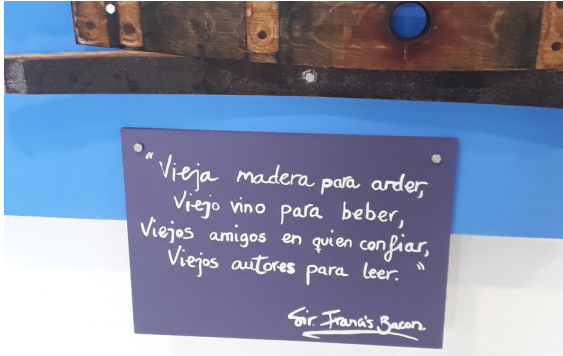 "Vieja madera para arder,
Viejo vino para beber,
Viejos amigos en quien confiar,
Viejos autores para leer."
Sir. Francis Bacon